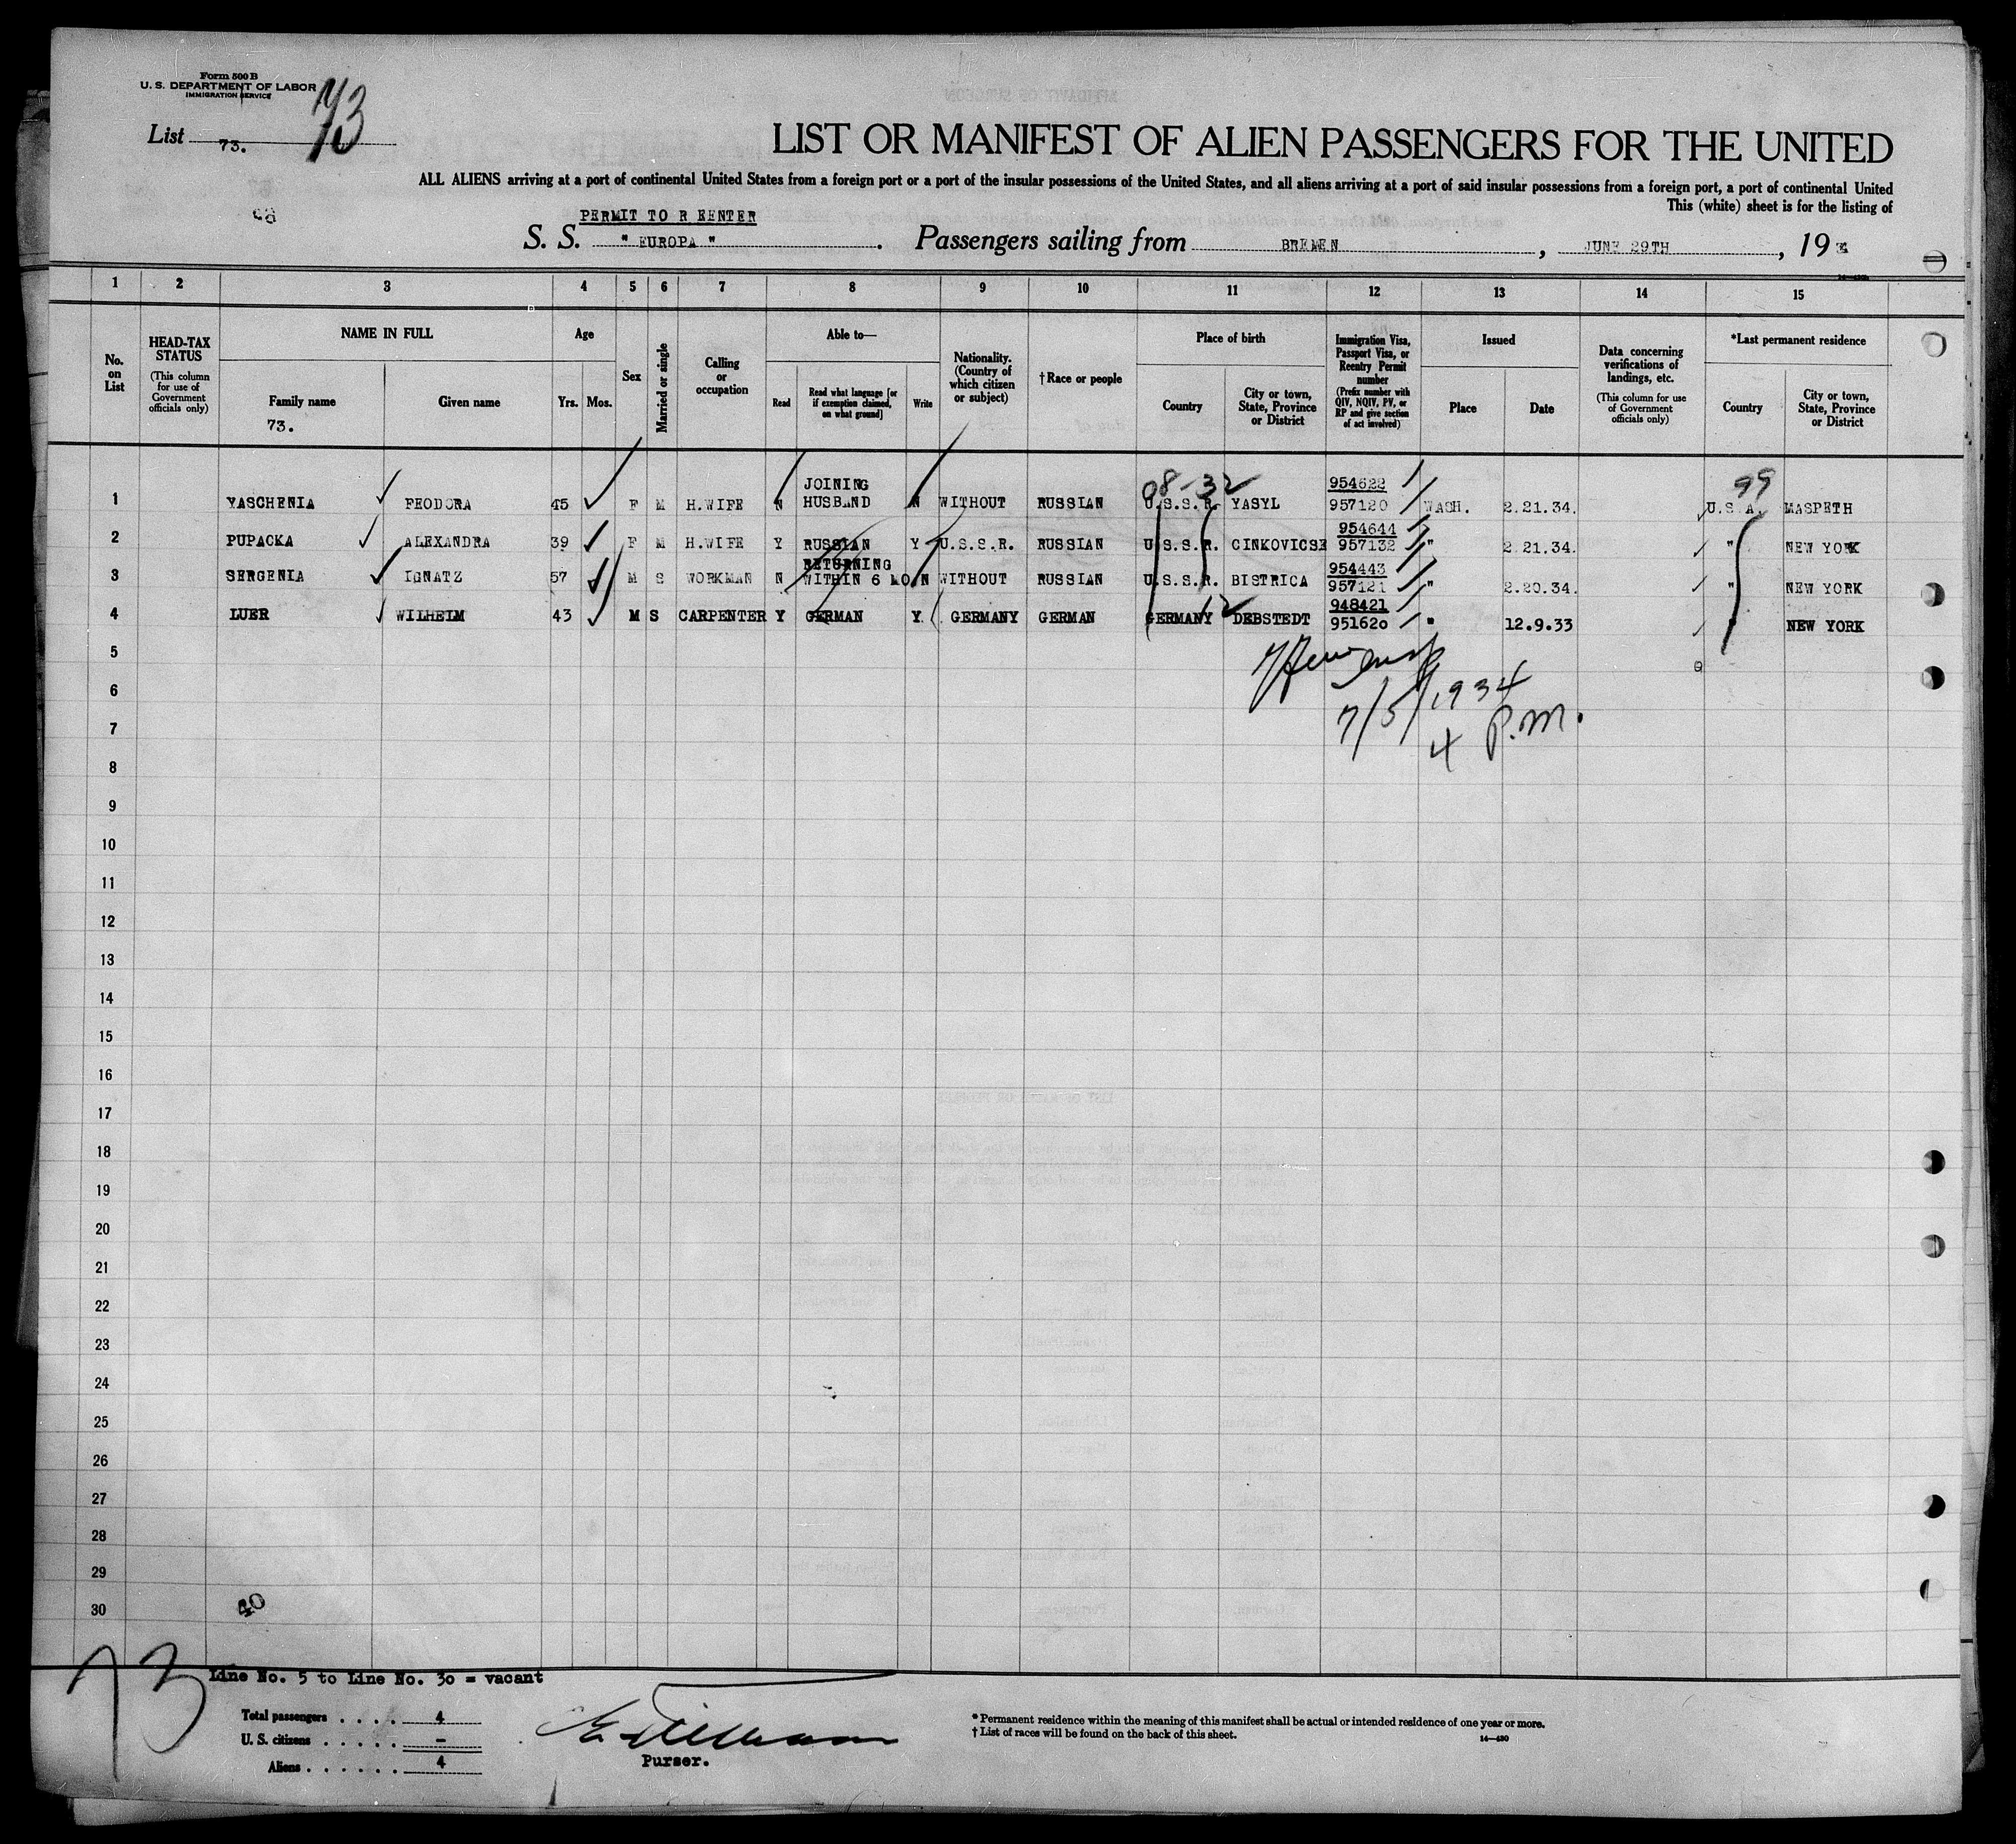 Form 500 B
U. S. DEPARTMENT OF LABOR
IMMIGRATION SERVICE
List 73. 73
LIST OR MANIFEST OF ALIEN PASSENGERS FOR THE UNITED
ALL ALIENS arriving at a port of continental United States from a foreign port or a port of the insular possessions of the United States, and all aliens arriving at a port of said insular possessions from a foreign port, a port of continental United
This (white) sheet is for the listing of
PERMIT TO R EENTER
S. S. " EUROPA " . Passengers sailing from BREMEN , JUNE 29TH , 19
1 2 3 4 5 6 7 8 9 10 11 12 13 14 15
No. on List
HEAD-TAX STATUS (This column for use of Government officials only)
NAME IN FULL
Family name
73.
Given name
Age
Yrs. Mos.
Sex
Married or single
Calling or occupation
Able to—
Read
Read what language [or if exemption claimed, on what ground]
Write
Nationality. (Country of which citizen or subject)
†Race or people
Place of birth
Country
City or town, State, Province or District
Immigration Visa, Passport Visa, or Reentry Permit number (Prefix number with QIV, NQIV, PV, or RP and give section of act involved)
Issued
Place
Date
Data concerning verifications of landings, etc. (This column for use of Government officials only)
*Last permanent residence
Country
City or town, State, Province or District
08-32 99
JOINING 954622
1 YASCHENIA FEODORA 45 F M H.WIFE N HUSBAND N WITHOUT RUSSIAN U.S.S.R. YASYL 957120 WASH. 2.21.34. U.S.A. MASPETH
954644
2 PUPACKA ALEXANDRA 39 F M H.WIFE Y RUSSIAN Y U.S.S.R. RUSSIAN U.S.S.R. CINKOVICSE 957132 " 2.21.34. " NEW YORK
RETURNING 954443
3 SERGENIA IGNATZ 57 M S WORKMAN N WITHIN 6 MO. N WITHOUT RUSSIAN U.S.S.R. BISTRICA 957121 " 2.20.34. " NEW YORK
12 948421
4 LUER WILHELM 43 M S CARPENTER Y GERMAN Y GERMANY GERMAN GERMANY DEBSTEDT 951620 " 12.9.33 " NEW YORK
5
6
7/5/1934
7
4 P.M.
8
9
10
11
12
13
14
15
16
17
18
19
20
21
22
23
24
25
26
27
28
29
30
40
73
Line No. 5 to Line No. 30 = vacant
Total passengers . . . . 4
U. S. citizens . . . . . –
Aliens . . . . . . 4
Purser.
* Permanent residence within the meaning of this manifest shall be actual or intended residence of one year or more.
† List of races will be found on the back of this sheet.
14—430